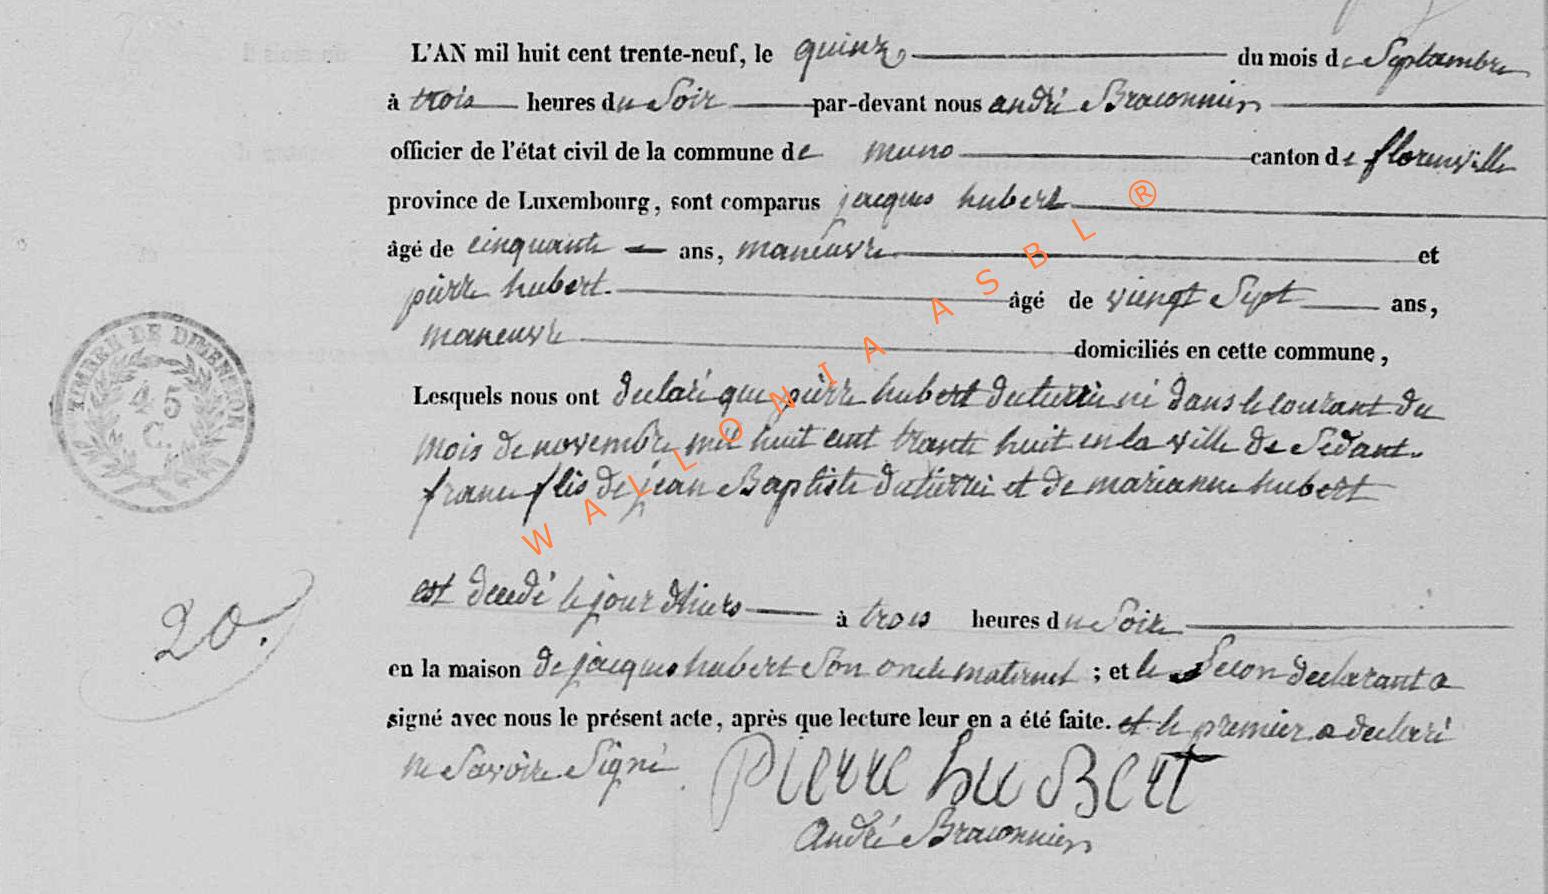 L'AN mil huit cent trente-neuf, le quinze du mois de Septembre
à trois heures du Soir par-devant nous andré Braconnier
officier de l'état civil de la commune de muno canton de florenville
province de Luxembourg, sont comparus jacques hubert
âgé de cinquante ans, maneuvre et
pierre hubert. âgé de viengt Sept ans,
maneuvre domiciliés en cette commune,
Lesquels nous ont declaré que pierre hubert duterrie né dans le courant du
mois de novembre mil huit cent trante huit en la ville de Sedant.
france flis de jean Baptiste duterrie et de marianne hubert
est decedé le jour dhiers à trois heures du Soire
en la maison de jacques hubert Son oncle maternel ; et le Secon declarant a
signé avec nous le présent acte, après que lecture leur en a été faite. et le premier a declaré
ne Savoire Signé PIERRE huBert
andré Braconnier
TIMBRE DE DIMENSION
45
C.
20.
WALLONIA ASBL ®